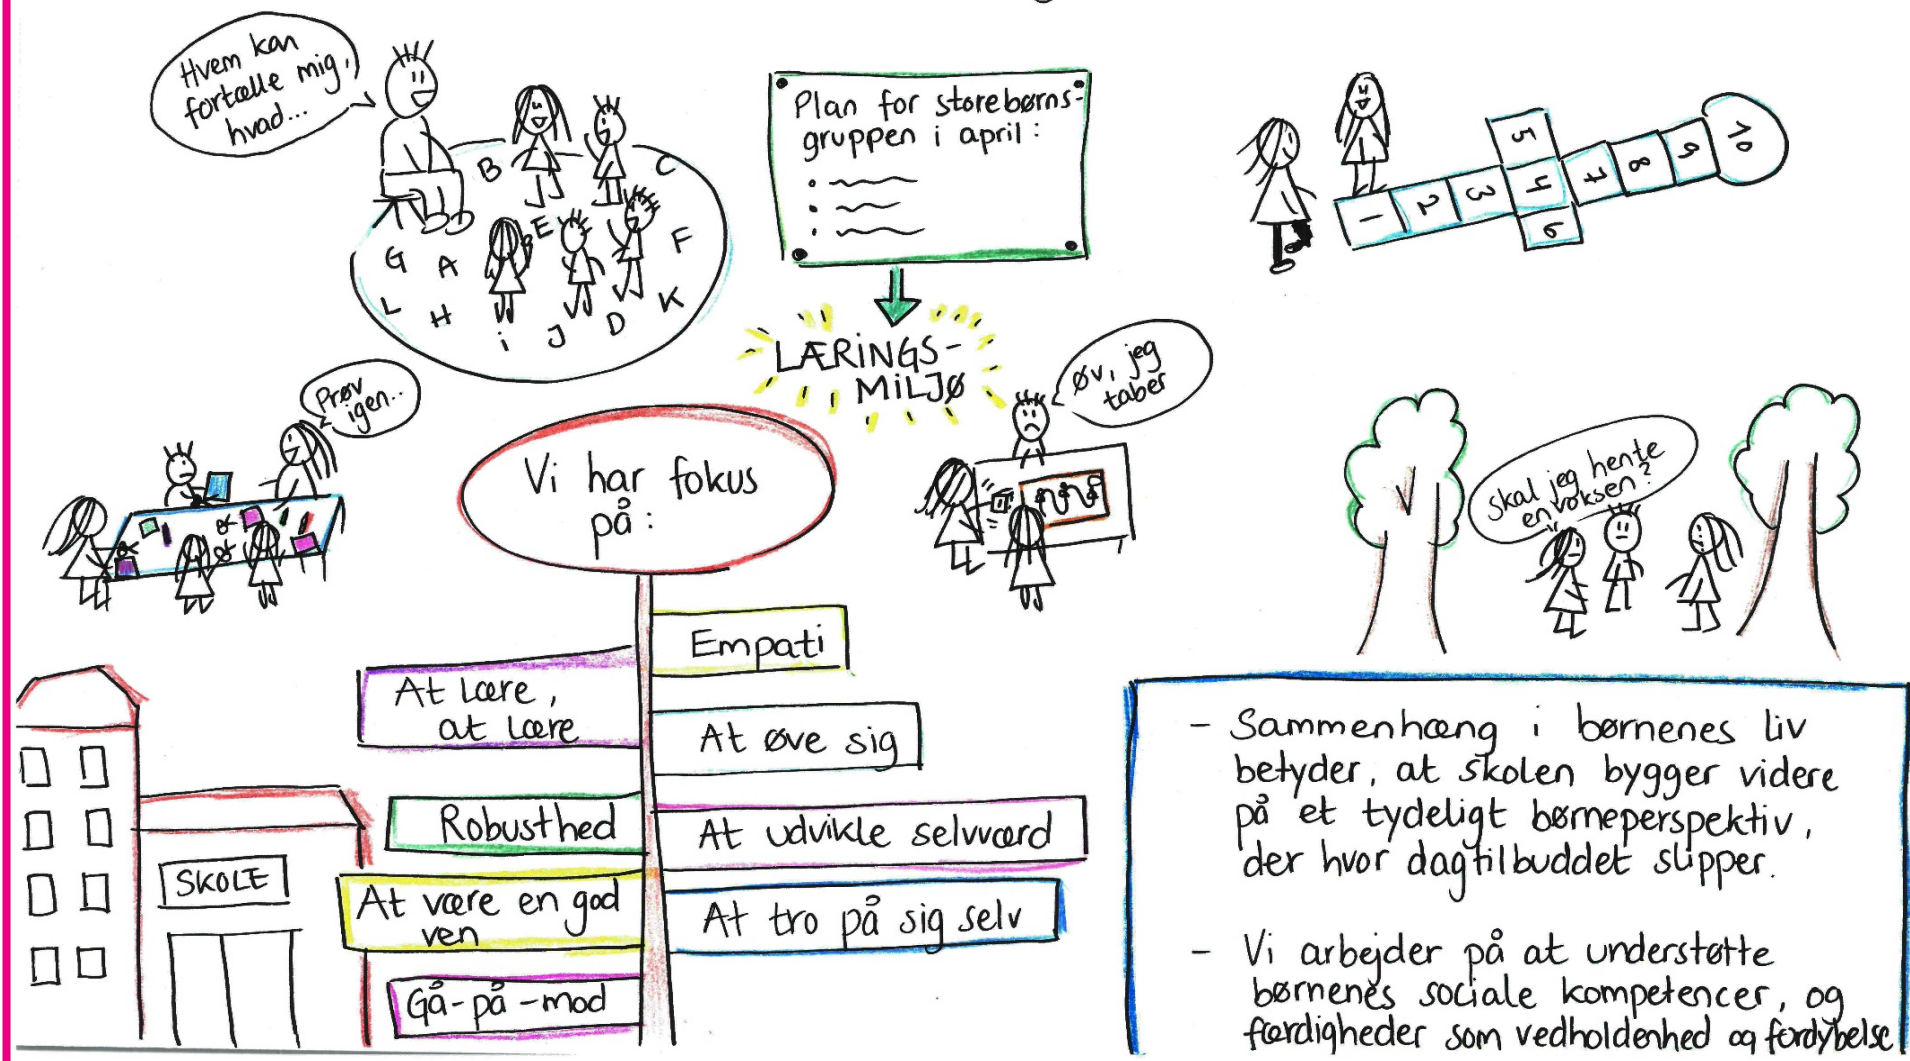 Hvem kan
fortælle mig,
hvad...
B
C
E
G
A
F
L
H
i
J
D
K
Plan for storebørns-
gruppen i april:
1
2
3
4
5
6
7
8
9
10
LÆRiNGS-
MiLJØ
Prøv
igen..
Øv, jeg
taber
Skal jeg hente
en voksen?
Vi har fokus
på:
Empati
At lære,
at lære
At øve sig
Robusthed
At udvikle selvværd
At være en god
ven
At tro på sig selv
Gå-på-mod
SKOLE
- Sammenhæng i børnenes liv
betyder, at skolen bygger videre
på et tydeligt børneperspektiv,
der hvor dagtilbuddet slipper.
- Vi arbejder på at understøtte
børnenes sociale kompetencer, og
færdigheder som vedholdenhed og fordybelse